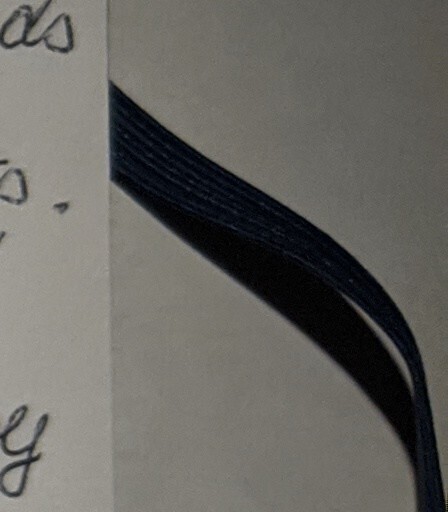 ds
s.
y